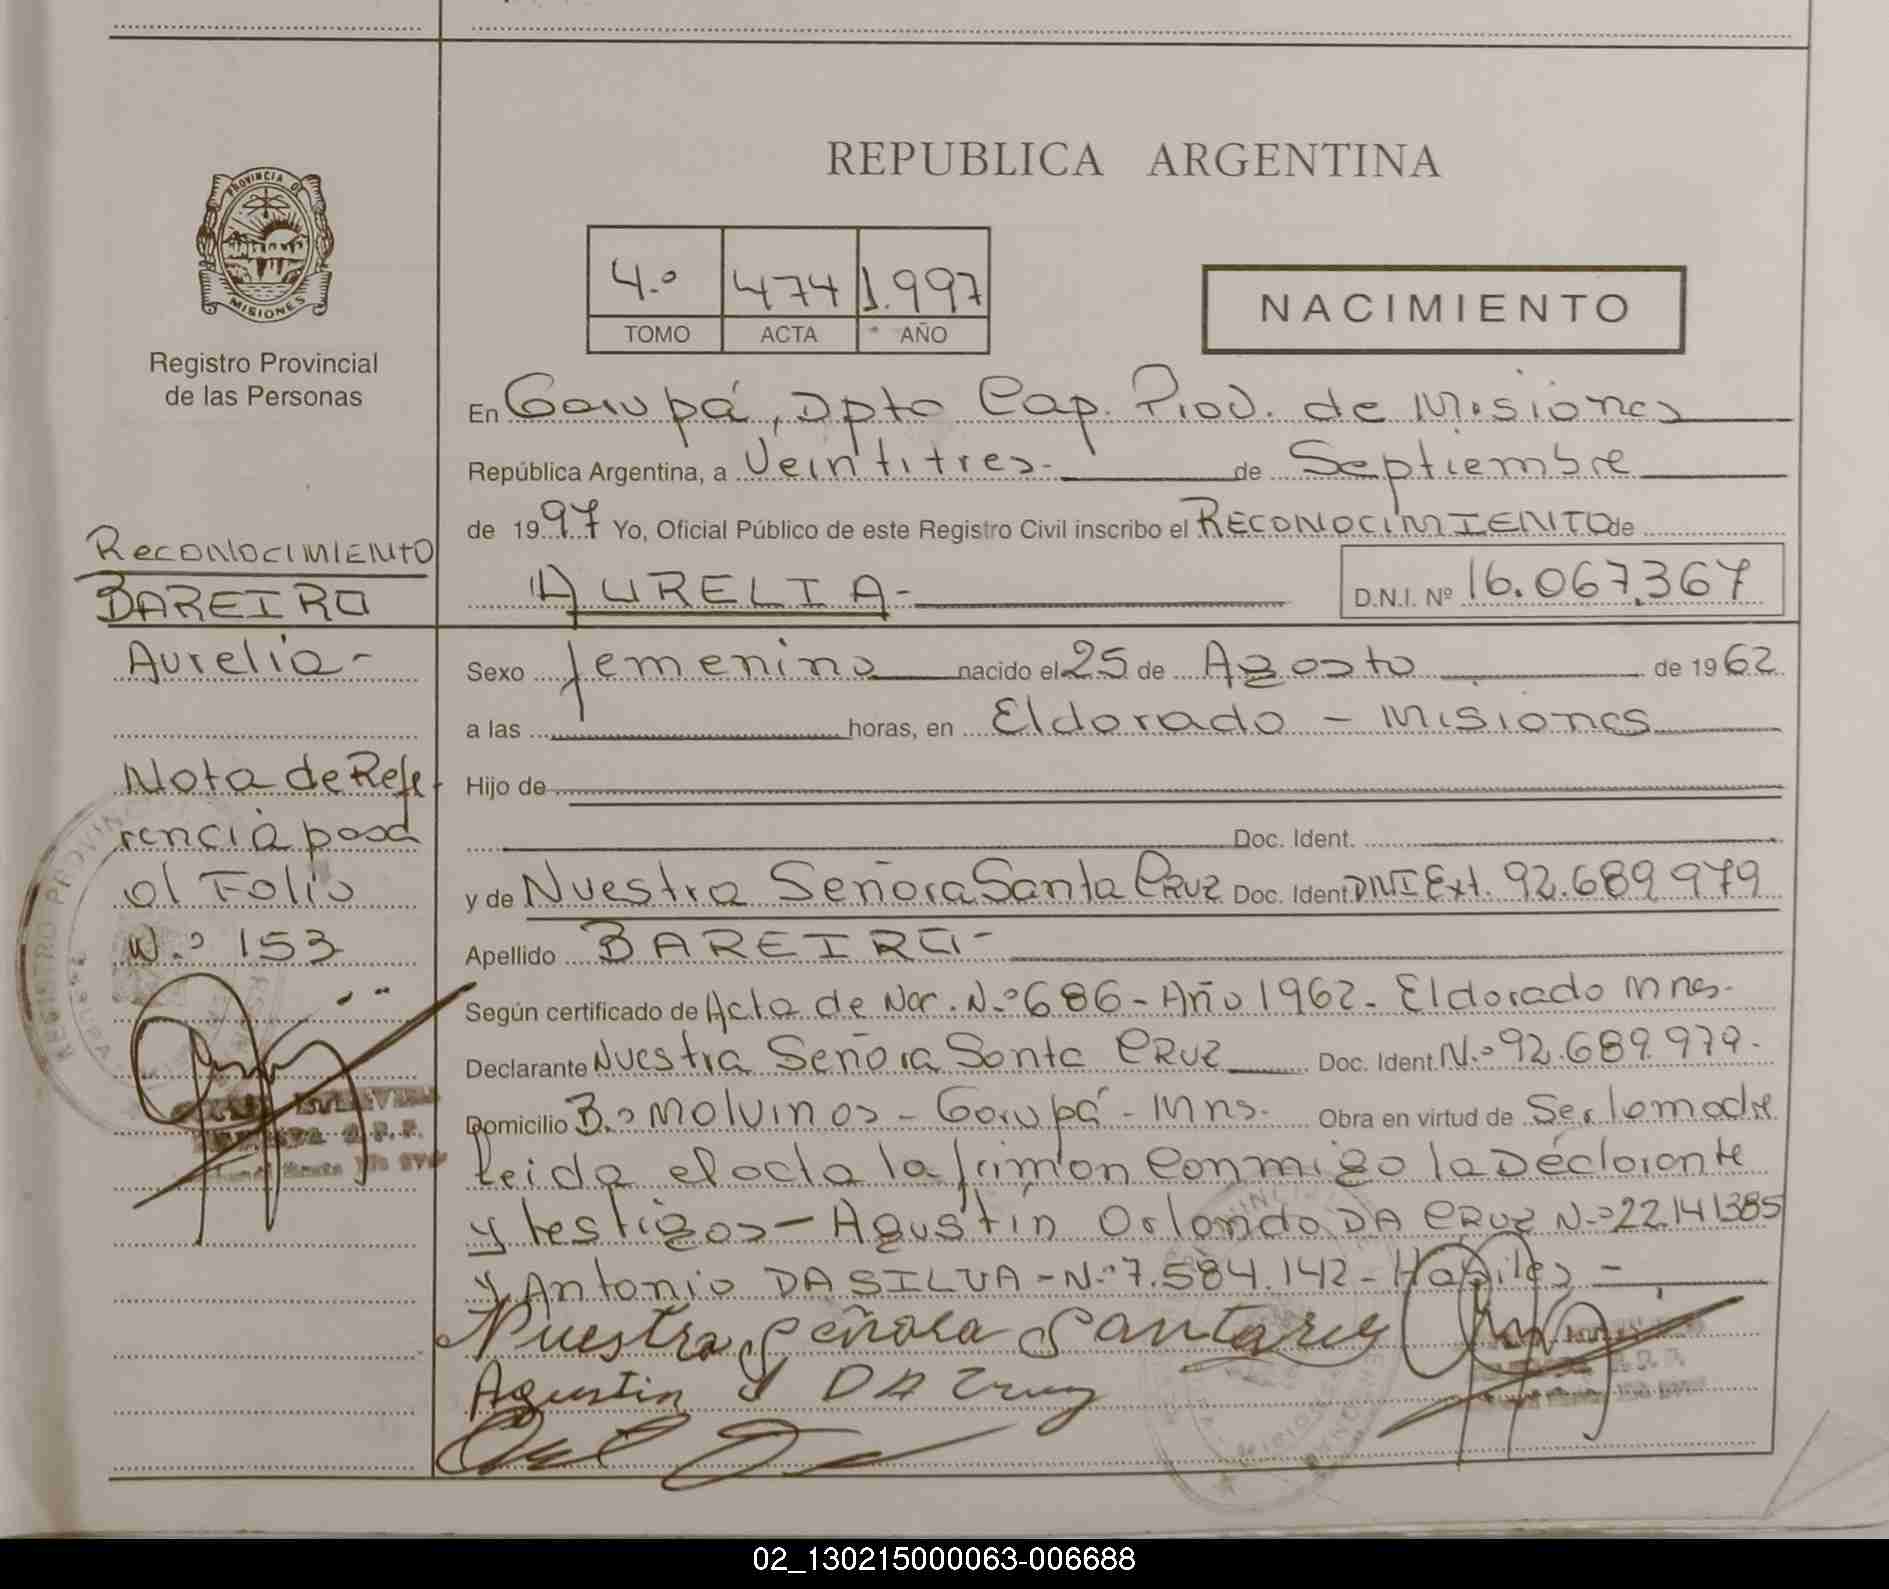 REPUBLICA ARGENTINA
PROVINCIA DE
MISIONES
Registro Provincial
de las Personas
4.º 474 1.997
TOMO ACTA AÑO
NACIMIENTO
En Garupá, Dpto Cap. Prov. de Misiones
República Argentina, a Veintitres.- de Septiembre
de 1997 Yo, Oficial Público de este Registro Civil inscribo el RECONOCIMIENTO de
AURELIA- D.N.I. Nº 16.067.367
Sexo femenino nacido el 25 de Agosto de 1962
a las horas, en Eldorado - Misiones
Hijo de
Doc. Ident.
y de Nuestra Señora Santa CRUZ Doc. Ident. DNI Ext. 92.689.979
Apellido BAREIRO-
Según certificado de Acta de Nac. N.º 686 - Año 1962 - Eldorado Mnes.
Declarante Nuestra Señora Santa CRUZ Doc. Ident. N.º 92.689.979.
Domicilio B.º Malvinas - Garupá - Mns. Obra en virtud de Ser la madre
Leida el acta la firman Conmigo la Declarante
y testigos - Agustín Orlando DA CRUZ N.º 22.141385
y Antonio DA SILVA - N.º 7.584.142 - Habiles -
Nuestra Señora Santacruz
Agustin DA Cruz
RECONOCIMIENTO
BAREIRO
Aurelia -
Nota de Refe-
rencia pasa
al Folio
N.º 153
REGISTRO PROVINCIAL
02_130215000063-006688